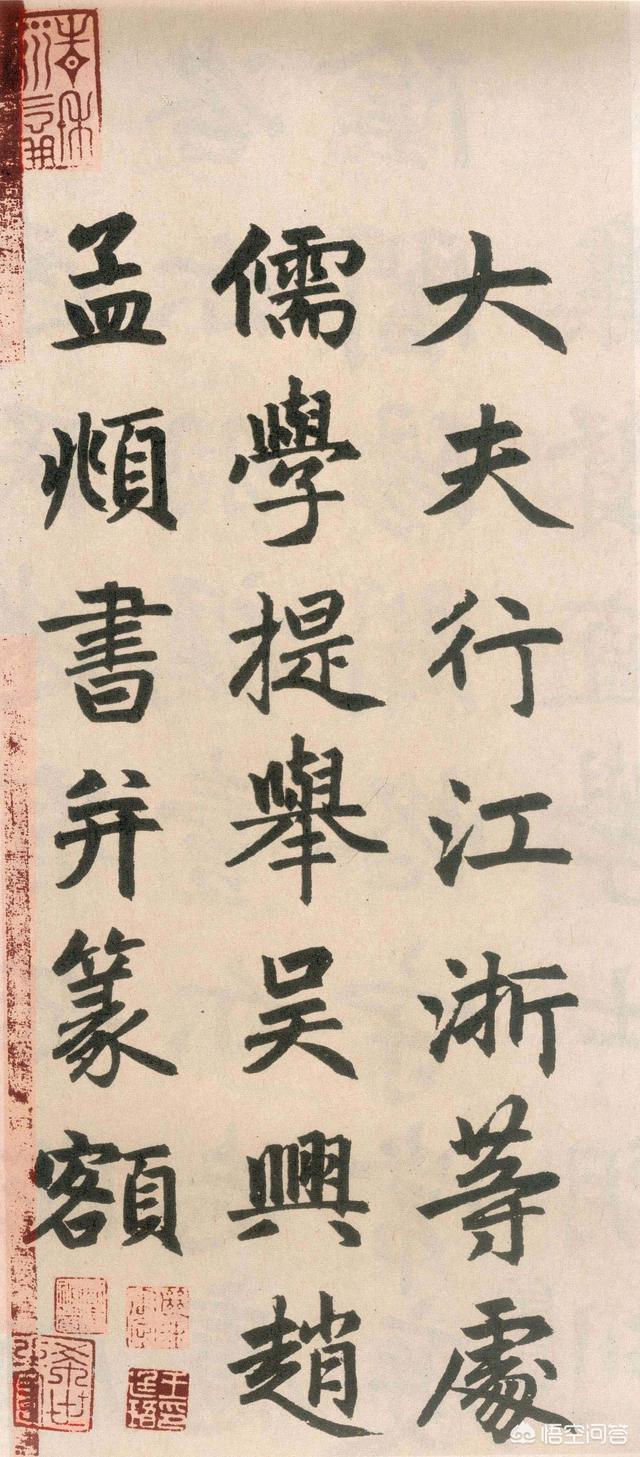 大夫行江浙等處
儒學提舉吴興趙
孟頫書并篆額
悟空问答